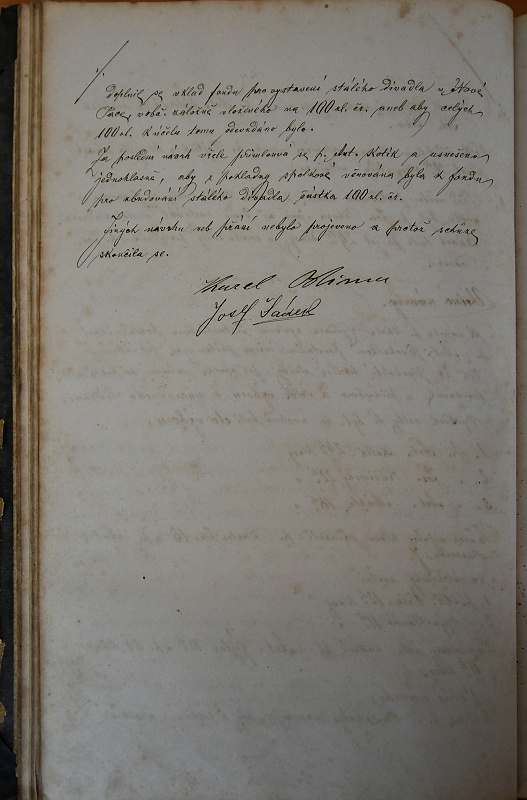 doplnil se vklad fondu pro vystavení stálého divadla v Nové
Pace, vobč. záložně vloženého na 100 zl. čc. aneb aby celých
100 zl. k účelu tomu odevzdáno bylo.
Za poslední návrh vřele přimlouvá se p. Ant. Kotik a usnešeno
jednohlasně, aby z pokladny spolkové věnována byla k fondu
pro zbudování stálého divadla částka 100 zl. čc.
Jiných návrhu neb přání nebylo projeveno a protož schůze
skončila se.
Karel
Josef